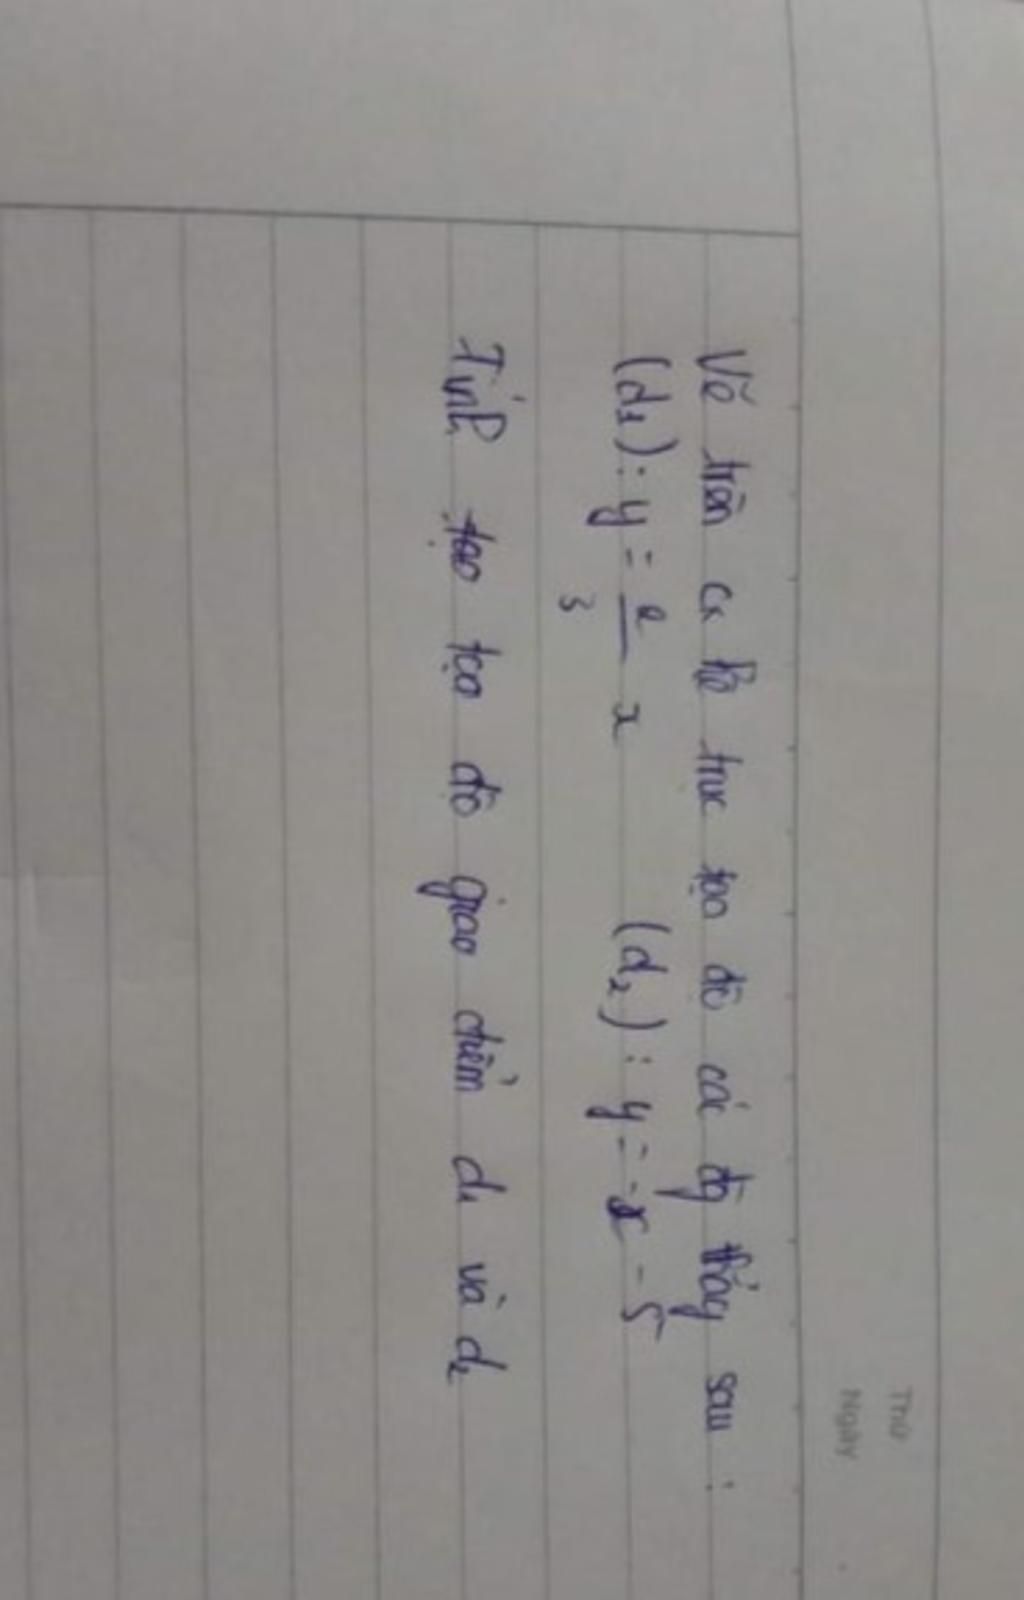 Thứ
Ngày
Vẽ trên cx hệ trục tọa độ các đg thẳng sau :
(d₁) : y = 2/3 x (d₂) : y = -x - 5
Tính tạo tọa độ giao điểm d₁ và d₂